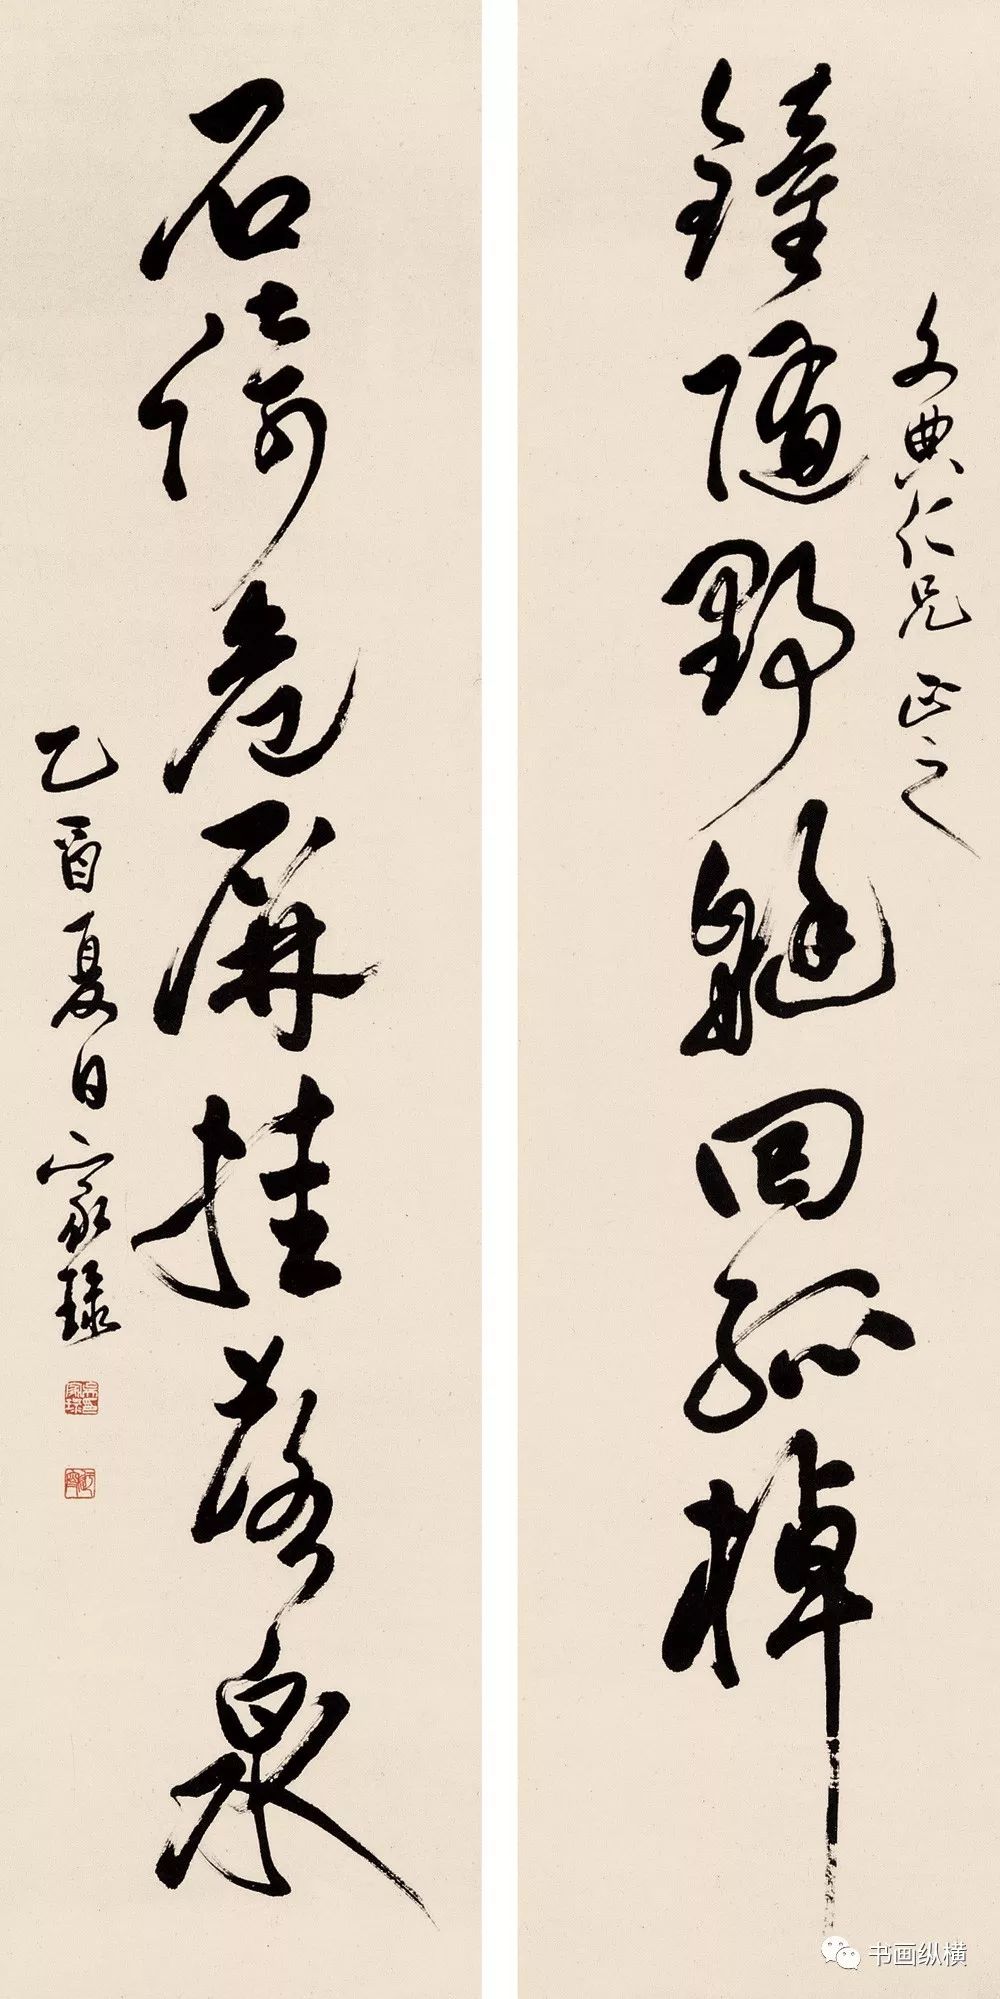 文典仁兄正之
鐘随野艇回孤棹
石倚危屏挂落泉
乙酉夏日家琭
书画纵横